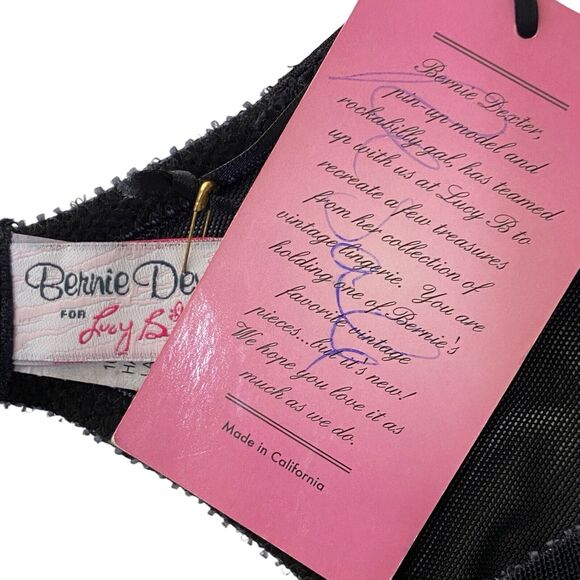 Bernie Dexter,
pin-up model and
rockabilly gal, has teamed
up with us at Lucy B to
recreate a few treasures
from her collection of
vintage lingerie. You are
holding one of Bernie's
favorite vintage
pieces...but it's new!
We hope you love it as
much as we do.
Made in California
Bernie De
FOR Lucy B